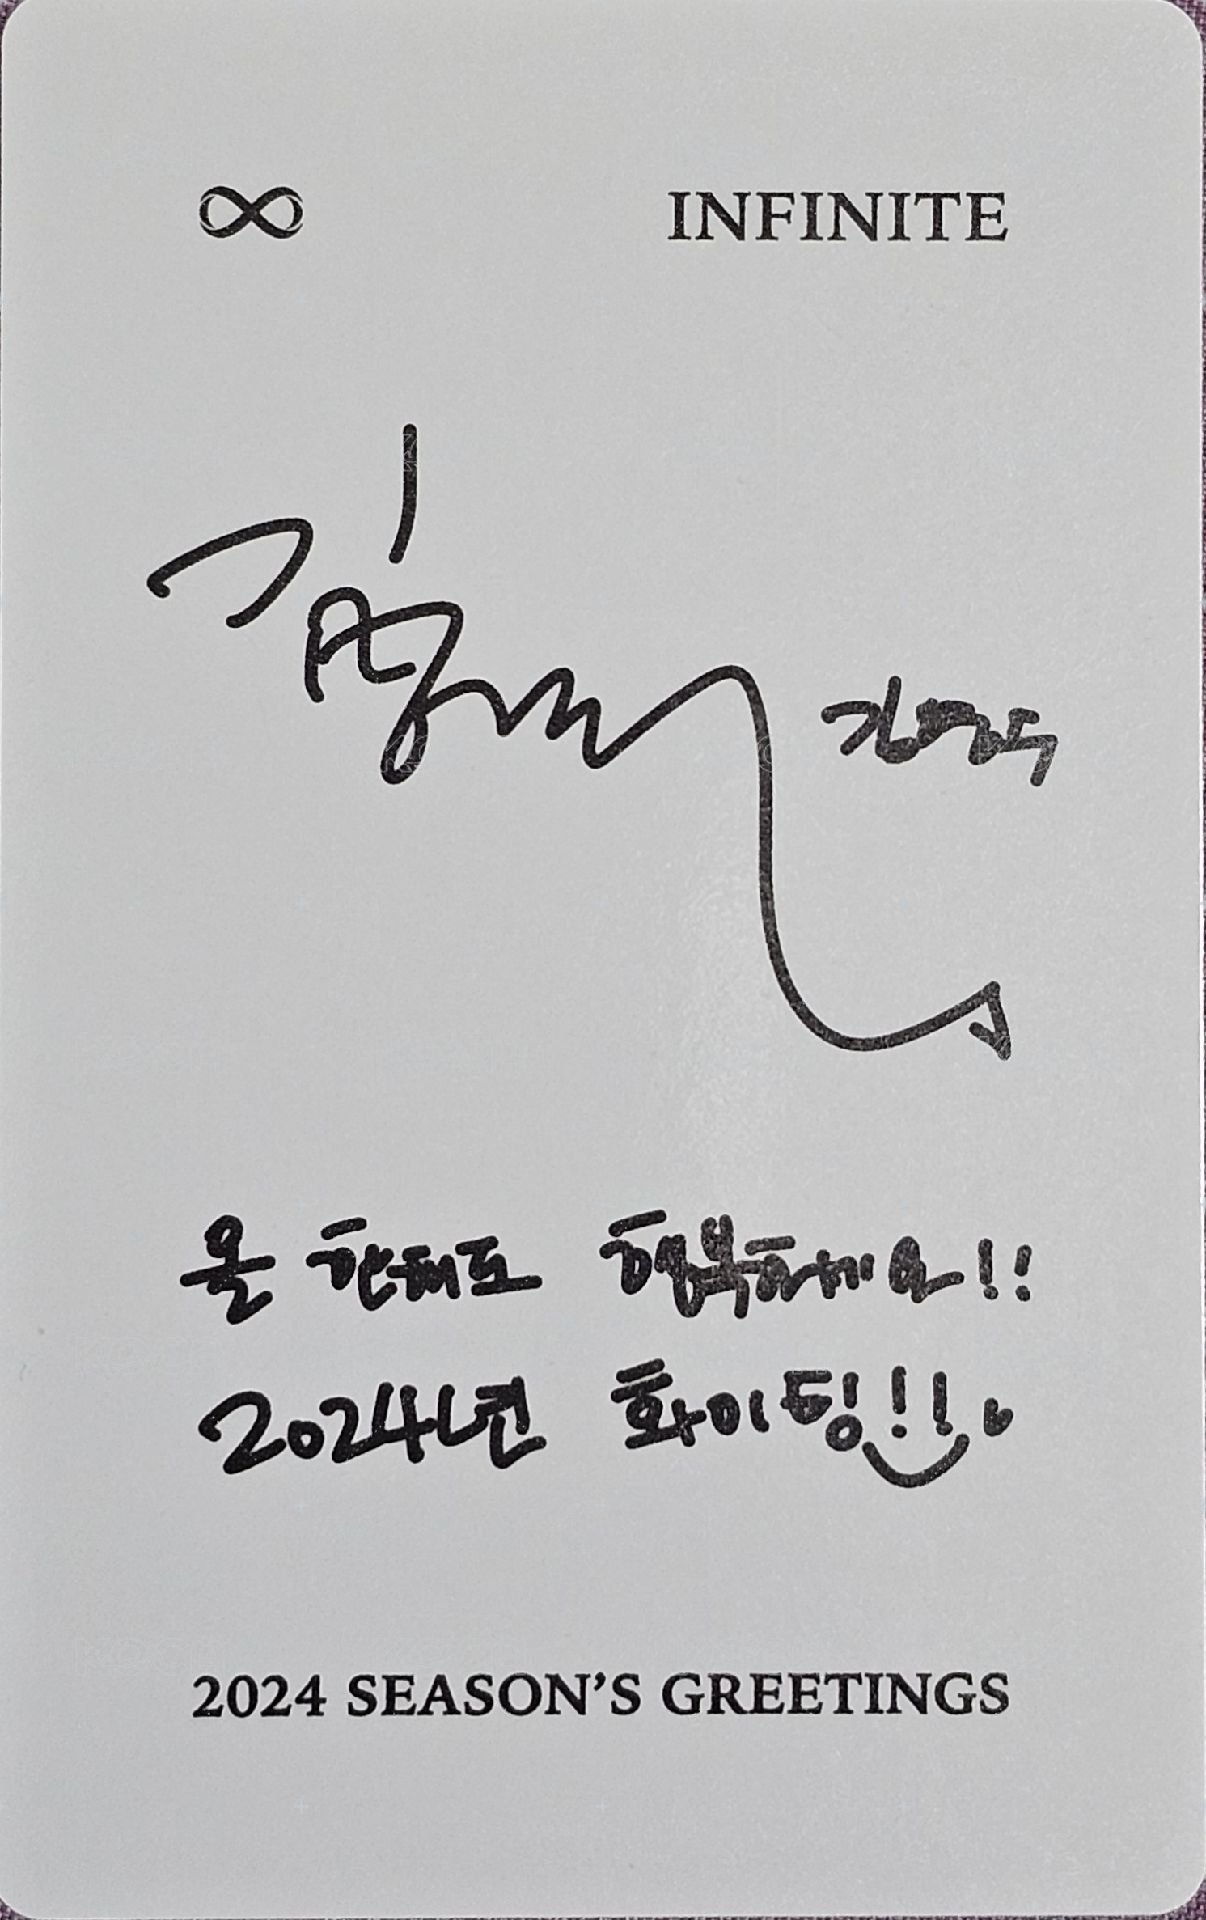 ∞ INFINITE
올 한해도 행복하세요!!
2024년 화이팅!!
2024 SEASON'S GREETINGS